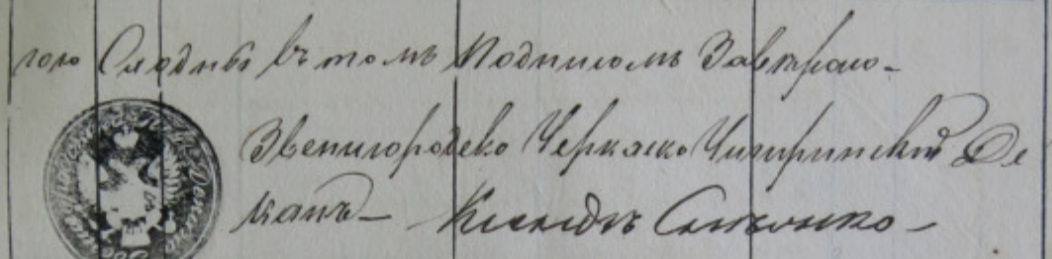 гою Сходны въ томъ Подписомъ Завѣряю-
Звенигородско Черкаско Чигиринскій Де
канъ- Ксендзъ